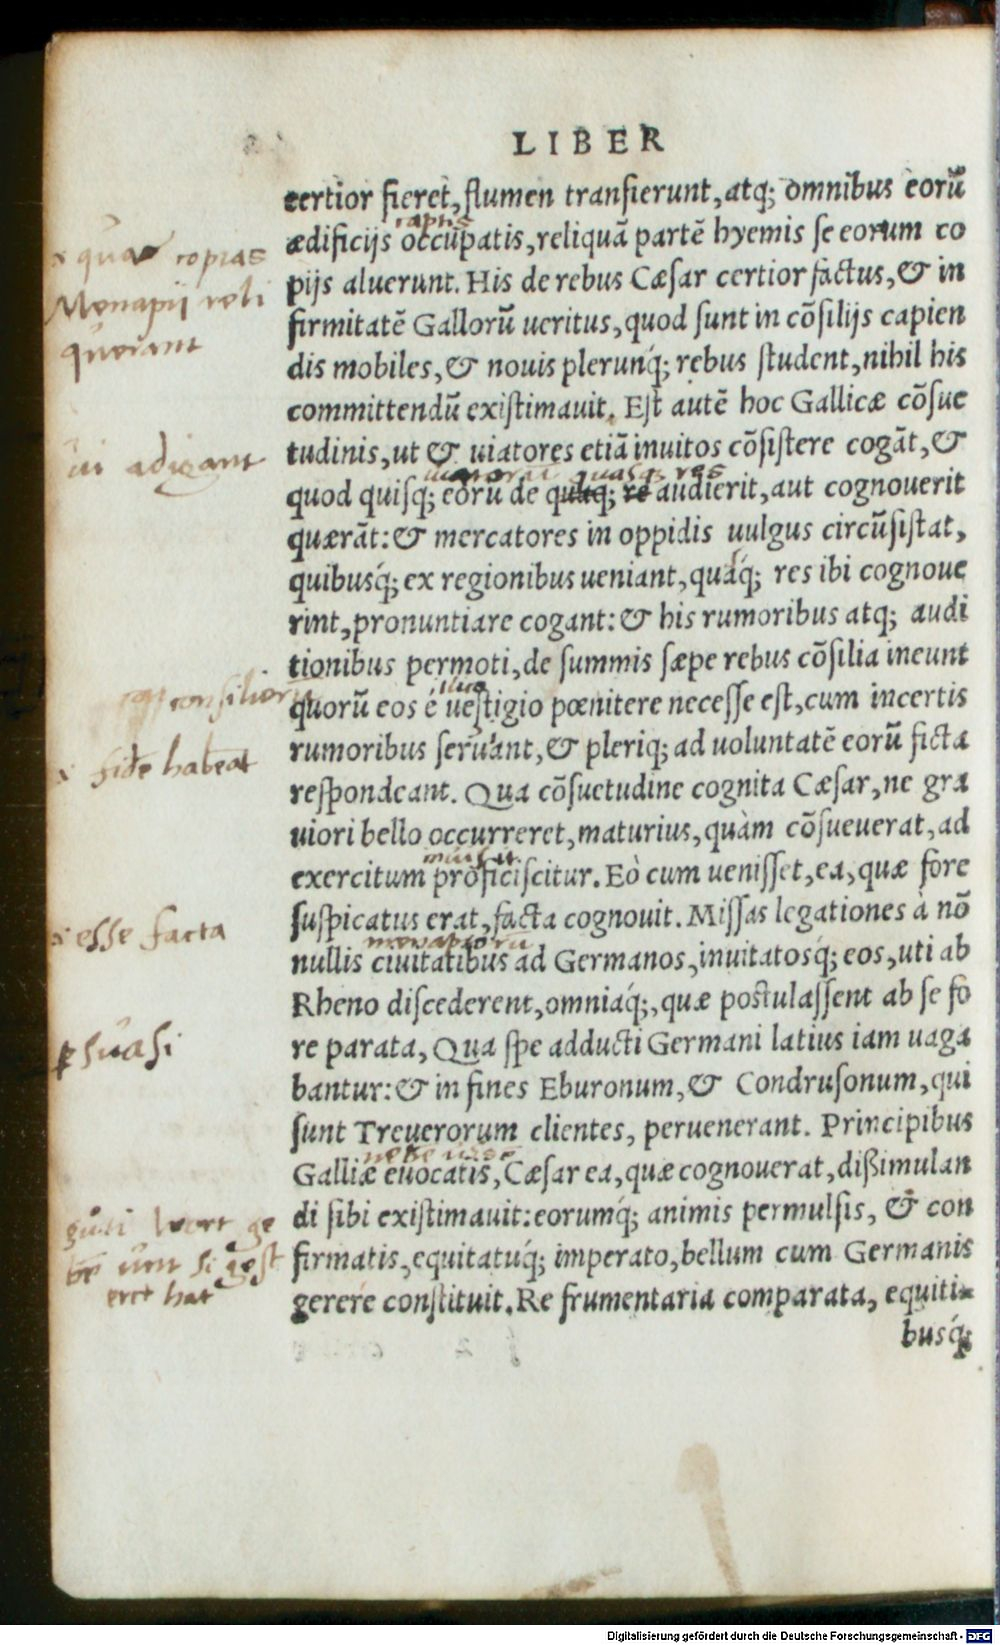 LIBER
certior fieret, flumen transierunt, atq; omnibus eorũ
raptis
ædificijs occupatis, reliquã partẽ hyemis se eorum co
quas copias
pijs aluerunt. His de rebus Cæsar certior factus, & in
Menapij reli
firmitatẽ Gallorũ ueritus, quod sunt in cõsilijs capien
querant
dis mobiles, & nouis plerunq́; rebus student, nihil his
committendũ existimauit. Est autẽ hoc Gallicæ cõsue
tudinis, ut & uiatores etiã inuitos cõsistere cogãt, &
ui adigant
quasq; res
quod quisq; eorũ de quaq; re audierit, aut cognouerit
quærãt: & mercatores in oppidis uulgus circũsistat,
quibusq́; ex regionibus ueniant, quasq́; res ibi cognoue
rint, pronuntiare cogant: & his rumoribus atq; audi
tionibus permoti, de summis sæpe rebus cõsilia ineunt
consiliorũ
quorũ eos é uestigio pœnitere necesse est, cum incertis
rumoribus seruiant, & pleriq; ad uoluntatẽ eorũ ficta
fidẽ habeat
respondeant. Qua cõsuetudine cognita Cæsar, ne gra
uiori bello occurreret, maturius, quàm cõsueuerat, ad
exercitum proficiscitur. Eò cum uenisset, ea, quæ fore
suspicatus erat, facta cognouit. Missas legationes à nõ
esse facta
menapiorũ
nullis ciuitatibus ad Germanos, inuitatosq́; eos, uti ab
Rheno discederent, omniaq́;, quæ postulassent ab se fo
re parata, Qua spe adducti Germani latius iam uaga
ꝑsuasi
bantur: & in fines Eburonum, & Condrusonum, qui
sunt Treuerorum clientes, peruenerant. Principibus
Galliæ euocatis, Cæsar ea, quæ cognouerat, dißimulan
di sibi existimauit: eorumq́; animis permulsis, & con
guti wort ge
firmatis, equitatuq́; imperato, bellum cum Germanis
bẽ unt si gest
gerere constituit. Re frumentaria comparata, equiti-
erct hat
busq́;
Digitalisierung gefördert durch die Deutsche Forschungsgemeinschaft - DFG